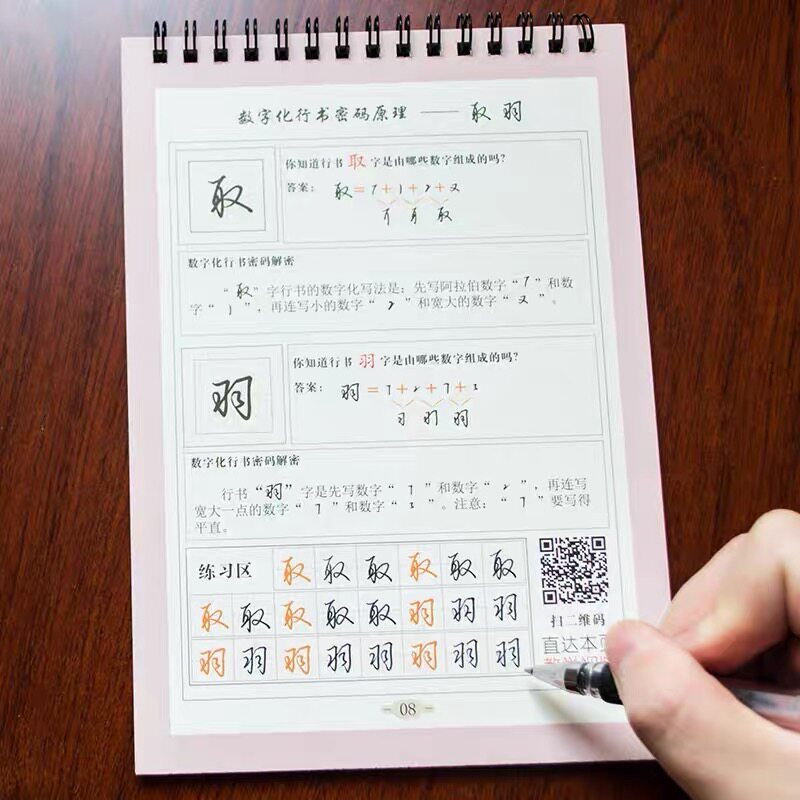 数字化行书密码原理 —— 取 羽
取
你知道行书 取 字是由哪些数字组成的吗?
答案: 取 = 7 + 1 + 2 + 又
取
数字化行书密码解密
“取”字行书的数字化写法是:先写阿拉伯数字“7”和数
字“1”,再连写小的数字“2”和宽大的数字“又”。
羽
你知道行书 羽 字是由哪些数字组成的吗?
答案: 羽 = 7 + 2 + 7 + 3
习 羽
数字化行书密码解密
行书“羽”字是先写数字“7”和数字“2”,再连写
宽大一点的数字“7”和数字“3”。注意:“7”要写得
平直。
练习区 取 取 取 取 取 取
取 取 取 取 取 羽 羽 羽
羽 羽 羽 羽 羽 羽 羽 羽
扫二维码
直达本页
08